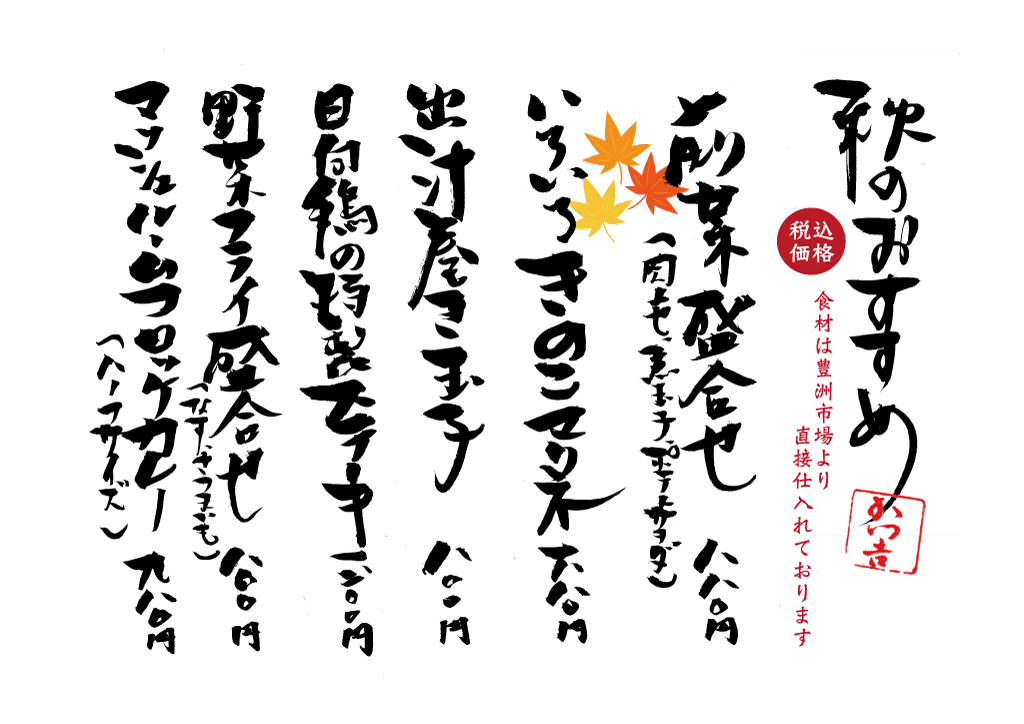 秋のおすすめ
税込価格
食材は豊洲市場より
直接仕入れております
前菜盛合せ 八八〇円
いろいろきのこマリネ 六八〇円
出汁巻き玉子 八〇〇円
日向鶏の特製ステーキ 一二〇〇円
野菜フライ盛合せ 八〇〇円
（なす、さつまいも）
マッシュルームブロッケカレー 九八〇円
（ハーフサイズ）